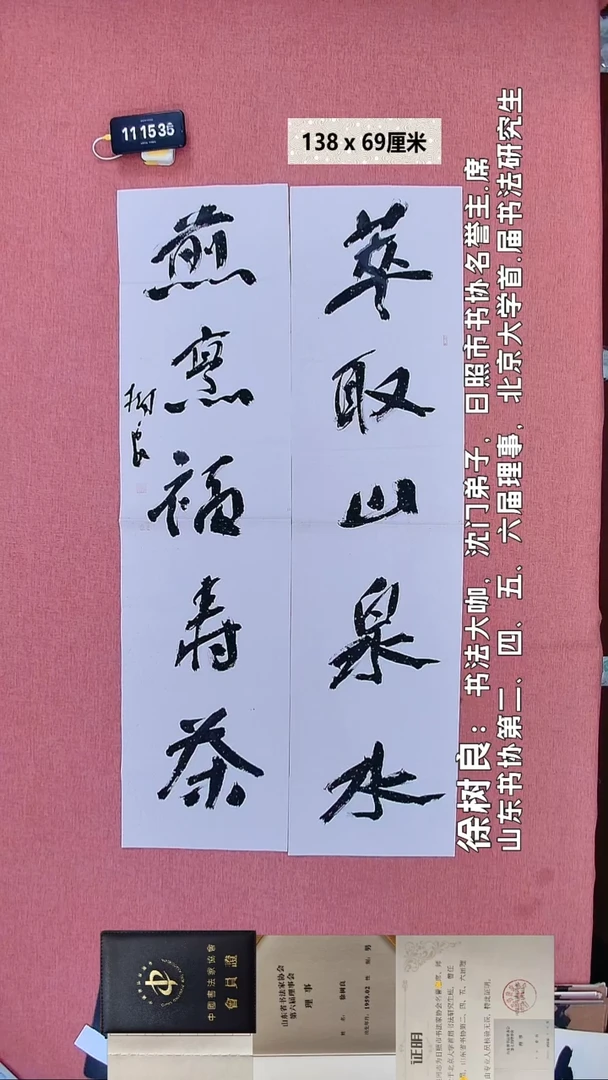 11 15 36
138 x 69厘米
萃取山泉水
煎熬福寿茶
树良
徐树良：书法大咖、沈门弟子、日照市书协名誉主.席
山东书协第二、四、五、六届理事、北京大学首.届书法研究生
中國書法家協會
會員證
山东省书法家协会
第六届理事会
理事
徐树良
男
证明